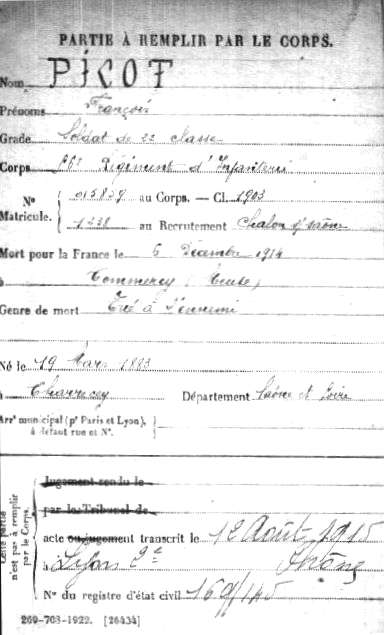 PARTIE À REMPLIR PAR LE CORPS.
Nom PICOT
Prénoms François
Grade Soldat de 2e classe
Corps Régiment d'Infanterie
Nº Matricule. { 015839 au Corps. — Cl. 1903
1238 au Recrutement Chalon s/ Saône
Mort pour la France le 6 Décembre 1914
à Commercy (Meuse)
Genre de mort Tué à l'ennemi
Né le 19 Mars 1883
à Charrecey Département Saône et Loire
Arrt municipal (pr Paris et Lyon), à défaut rue et Nº.
Cette partie n'est pas à remplir par le Corps.
Jugement rendu le
par le Tribunal de
acte ou jugement transcrit le 12 Août 1915
à Lyon 2e Rhône
Nº du registre d'état civil
269-708-1922. [26434]